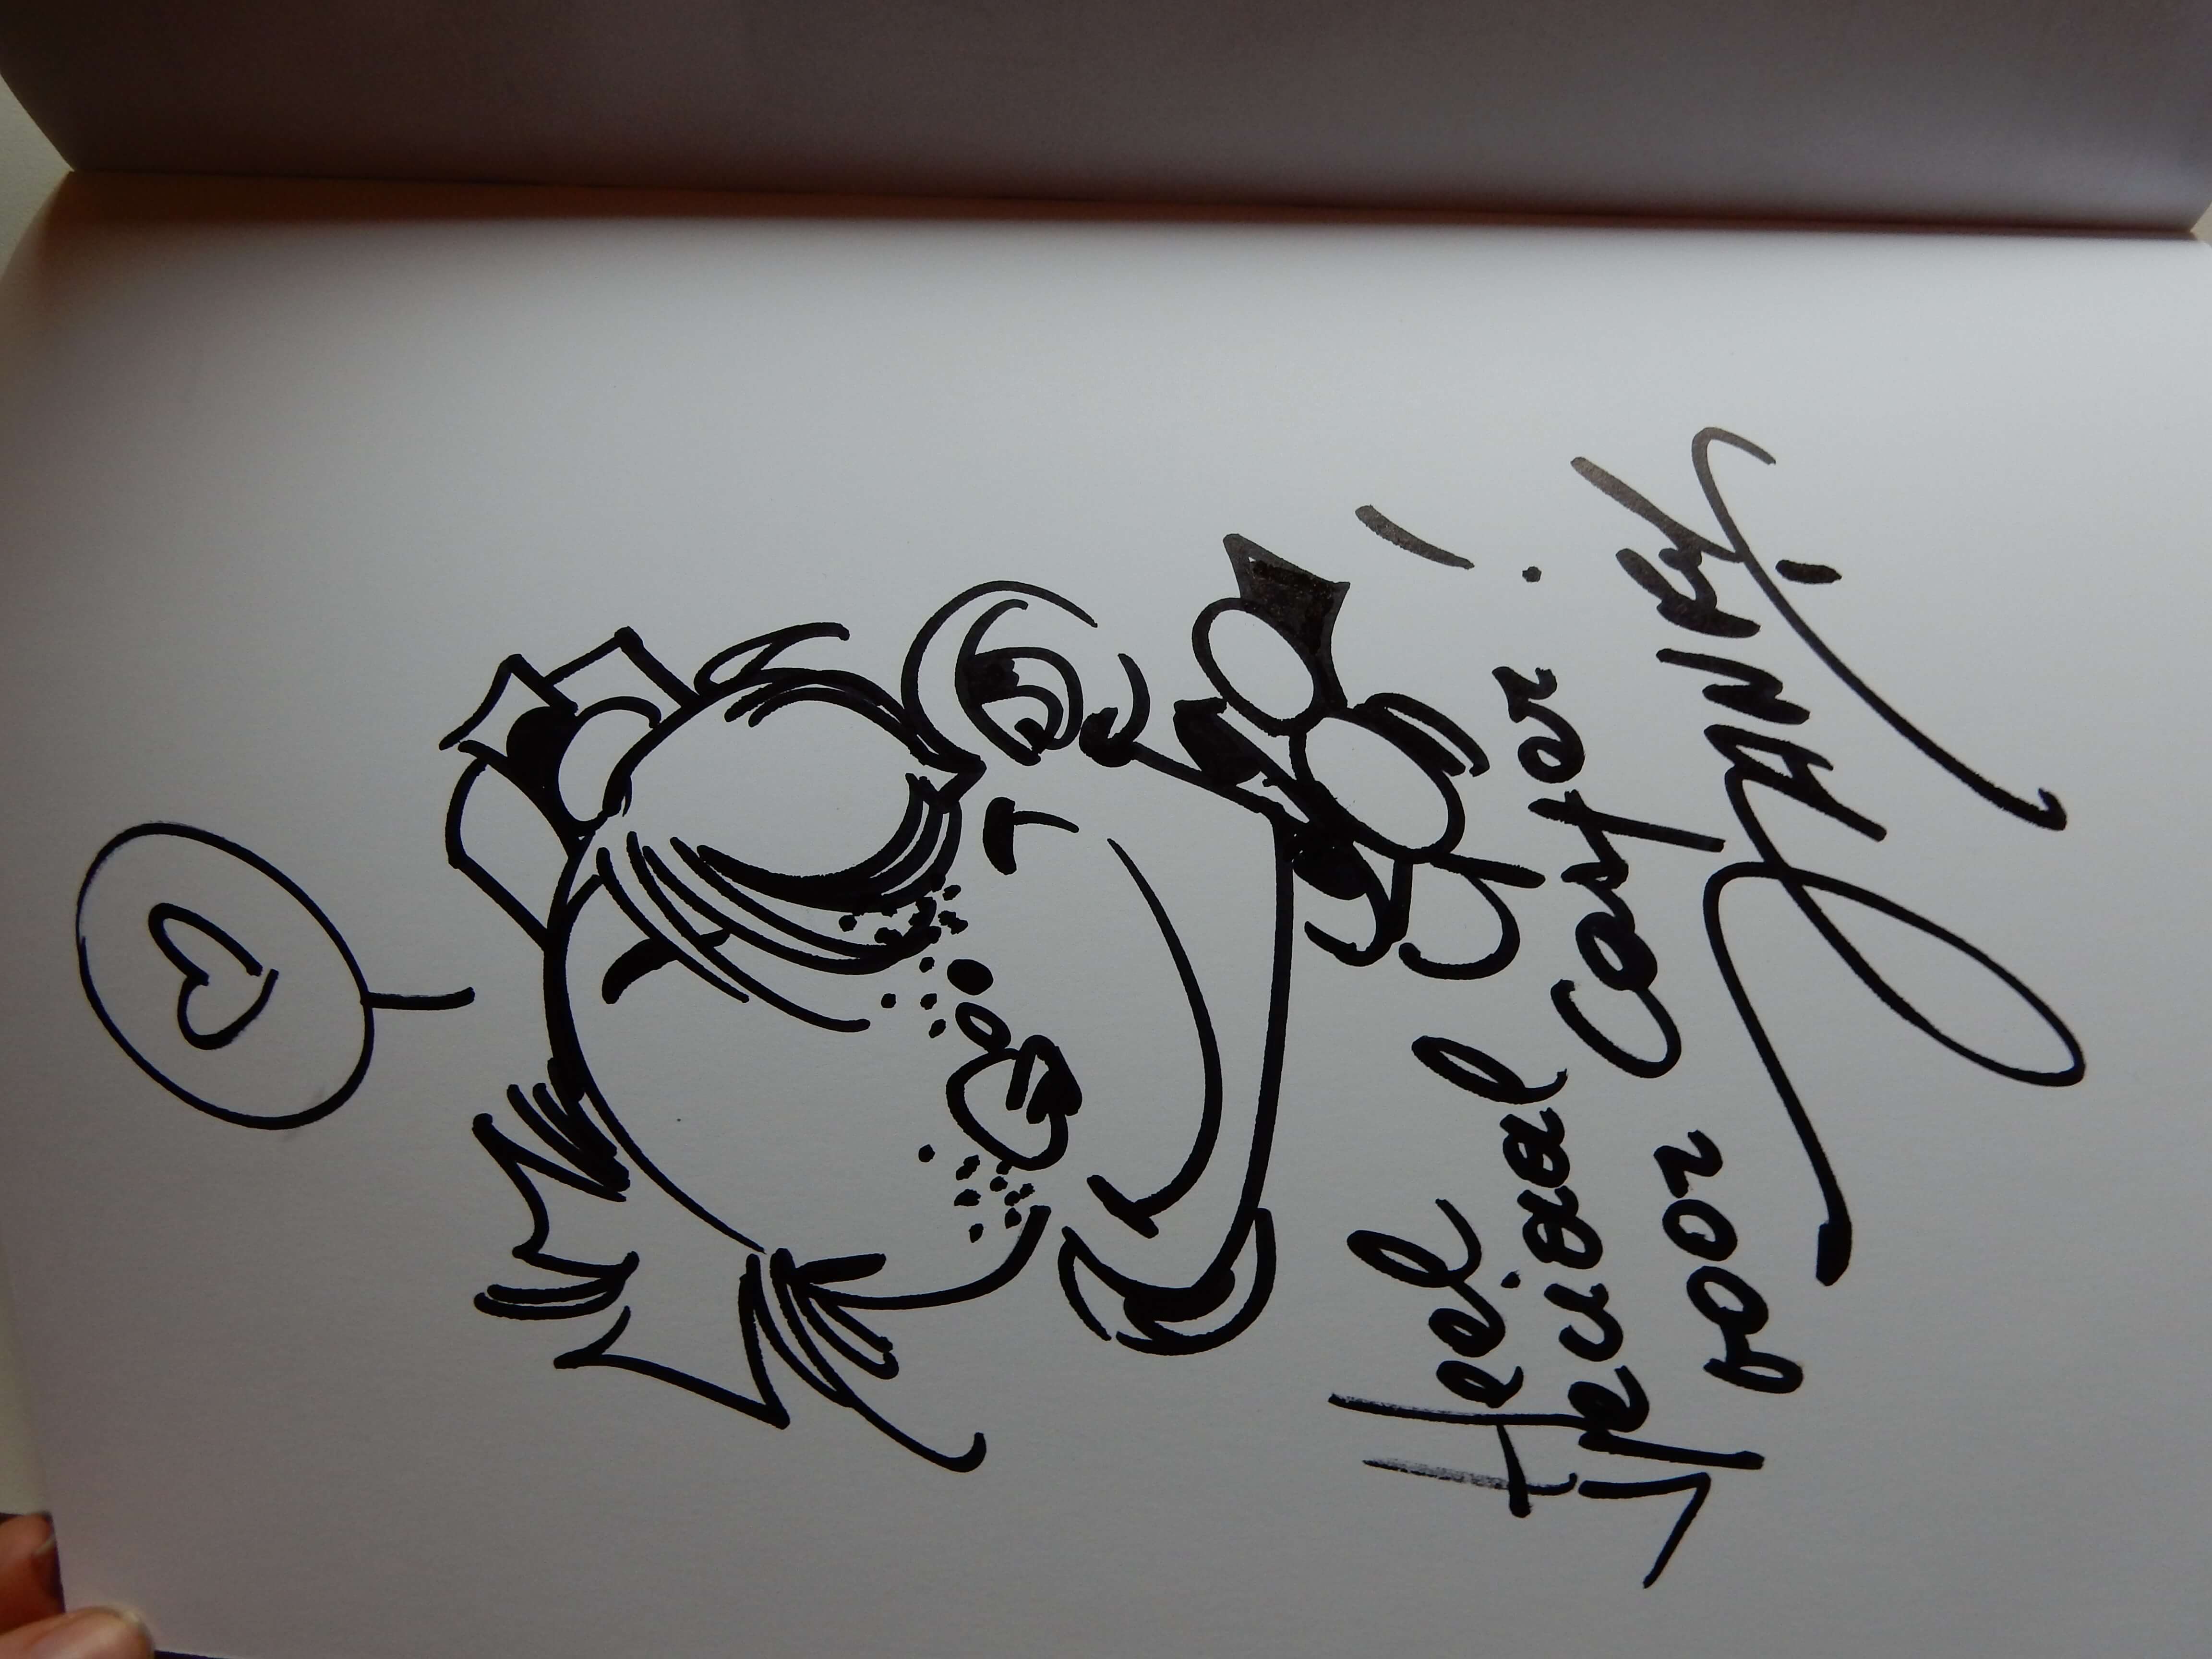 Heel
speciaal
voor Casper!
JANRY